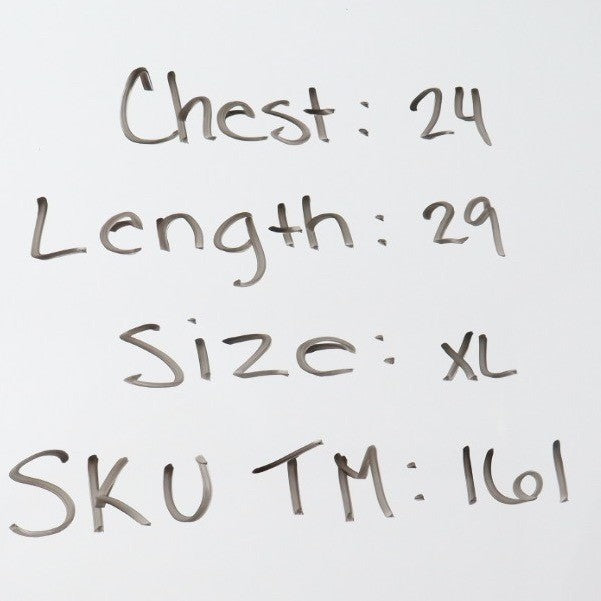 Chest: 24
Length: 29
Size: XL
SKU TM: 161